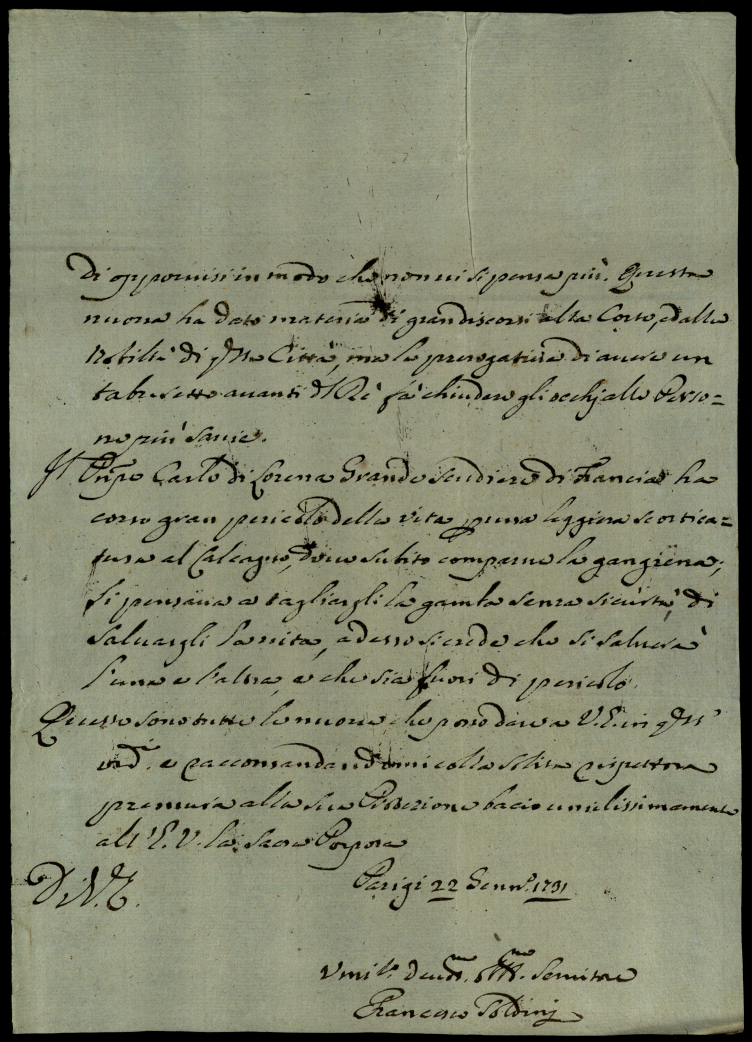 di opporuisi in modo che non ui si pensa più. Questa
nuoua ha dato materia di gran discorsi alla Corte, e dalla
Nobiltà di qsta Città, ma la prerogatiua di auere un
taburetto auanti il Rè fà chiudere gli occhj alle Perso=
ne più sauie.
Il Prñpe Carlo di Lorena Grande Scudiere di Francia ha
corso gran pericolo della vita p una leggiera scortica=
tura al Calcagno, doue subito comparue la gangrena;
si pensaua a tagliargli la gamba senza sicurtà di
saluargli la uita, adesso si crede che si saluerà
l'una e l'altra, e che sia fuori di pericolo.
Queste sono tutte le nuoue che posso dare a V. E. in qsto
ord.º e raccomandandomi colla solita rispettosa
premura alla sua Protezione bacio umilissimamente
all' E. V. la Sacra Porpora
Parigi 22 Genn.º 1731
Di V. E.
Vmil.º Deuot. Obb. Seruitore
Francesco Soldini